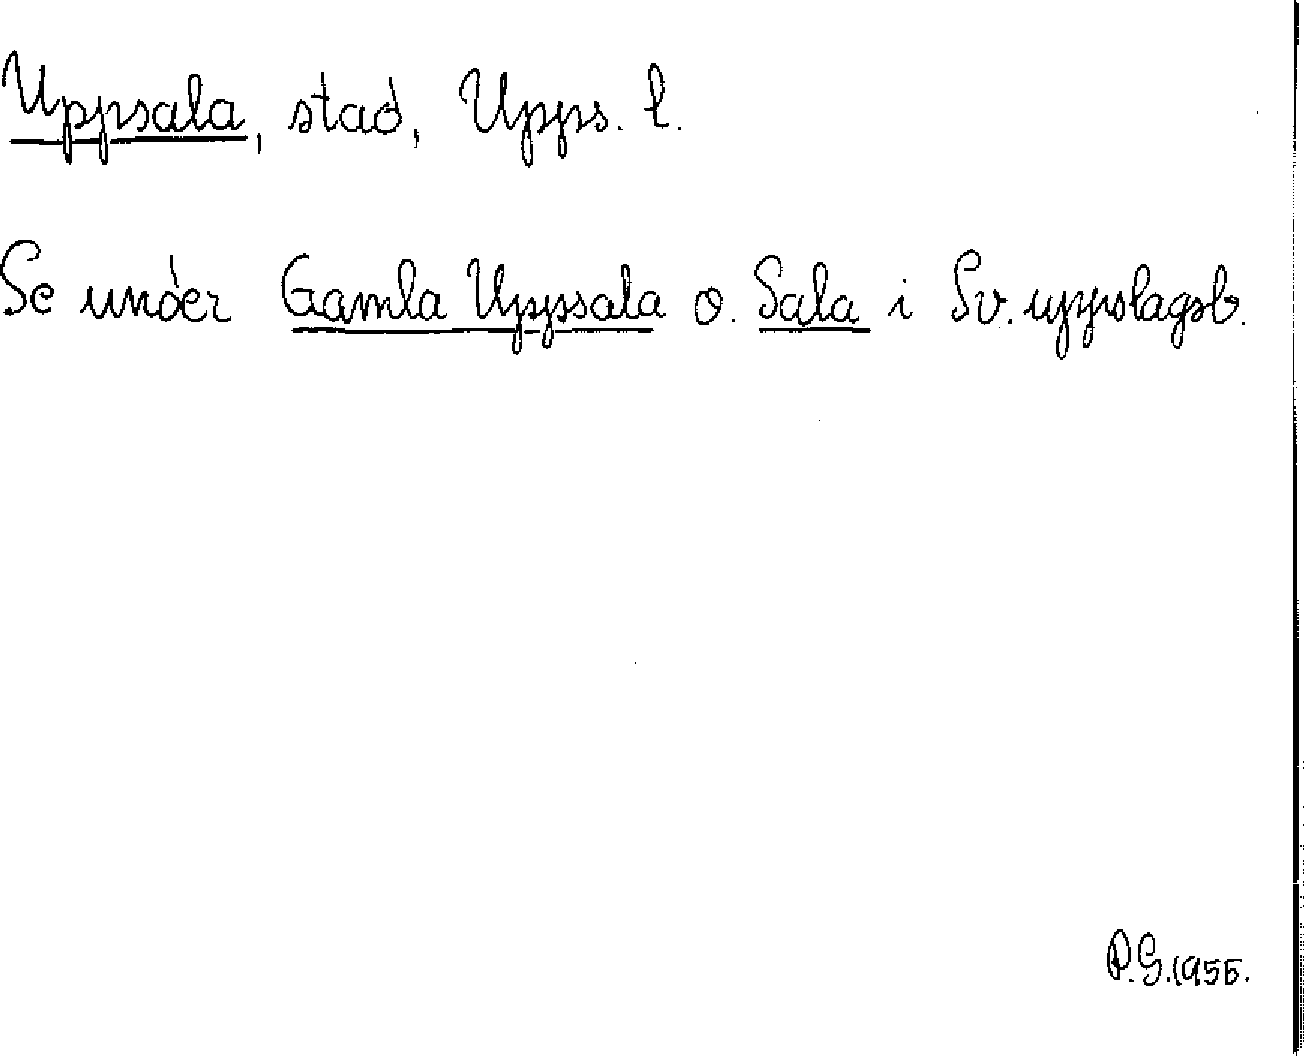 Uppsala, stad, Upps. l.
Se under Gamla Uppsala o. Sala i Sv. uppslagsb.
P.G. 1955.